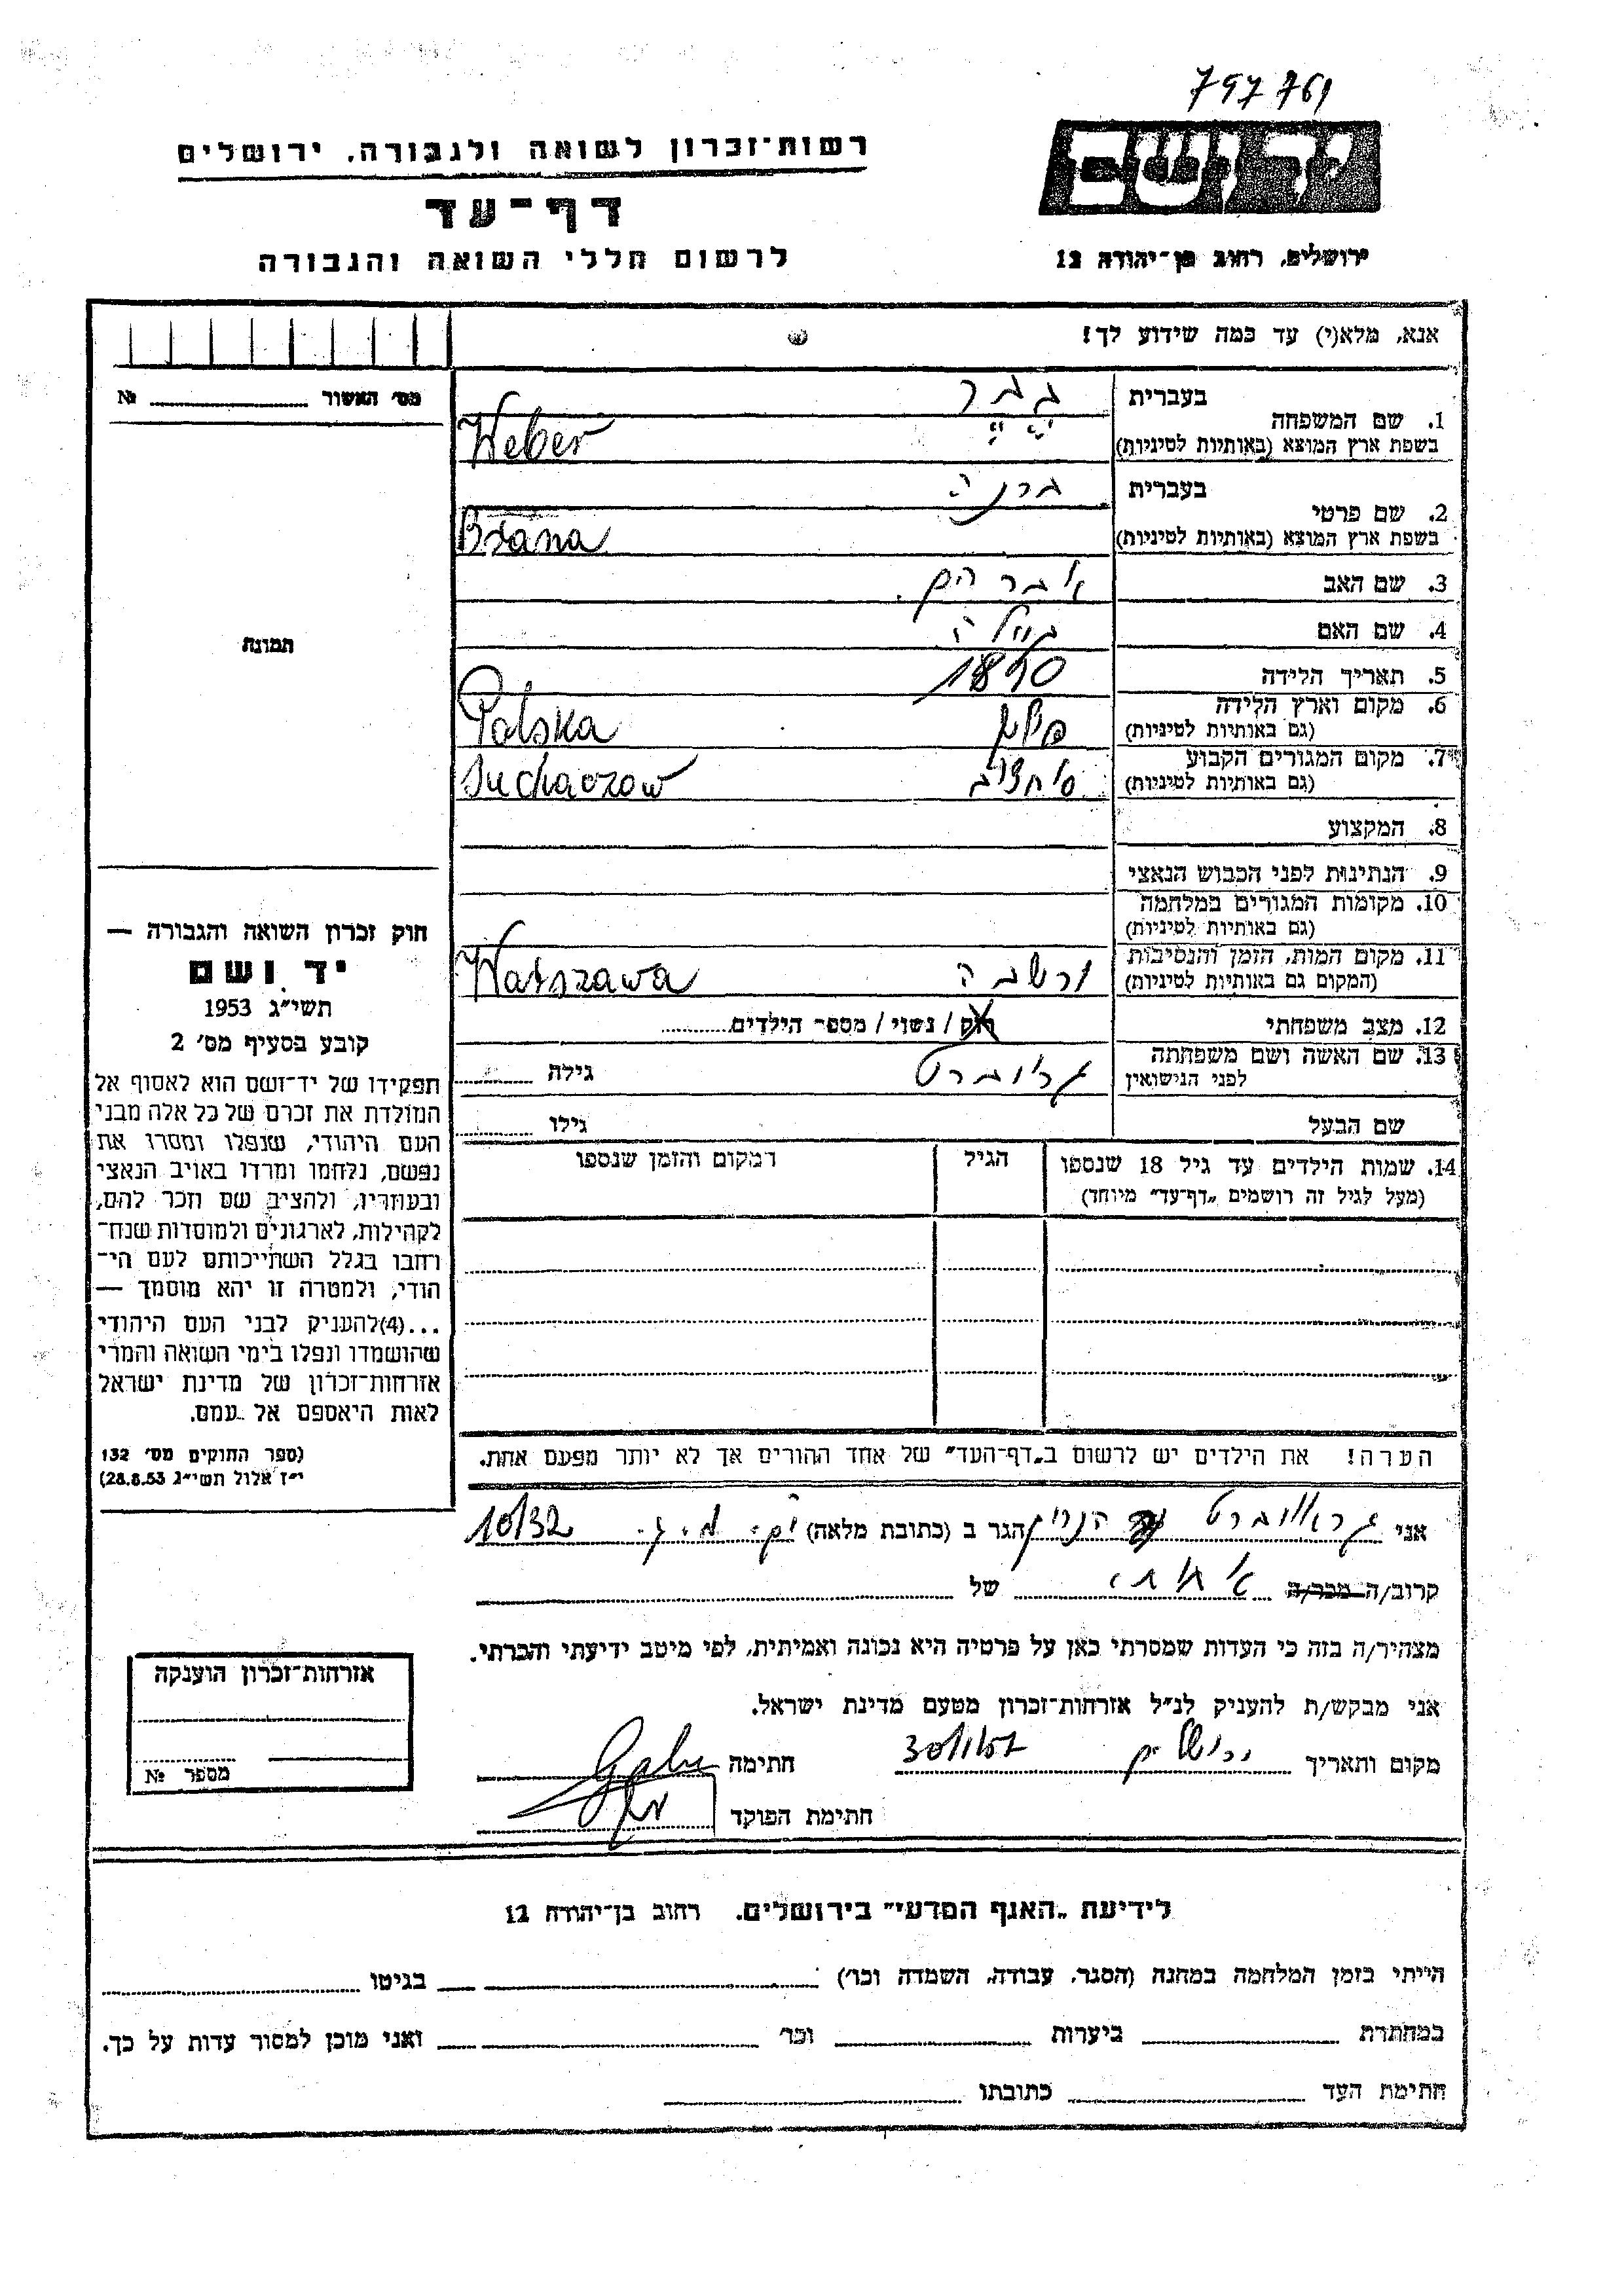 797761
יד ושם
ירושלים, רחוב בן־יהודה 12
רשות־זכרון לשואה ולגבורה, ירושלים
דף־עד
לרשום חללי השואה והגבורה
אנא, מלא(י) עד כמה שידוע לך!
מס׳ האשור № 
1. שם המשפחה
בעברית
בשפת ארץ המוצא (באותיות לטיניות)
Weber
2. שם פרטי
בעברית ברנה
בשפת ארץ המוצא (באותיות לטיניות)
Brana
3. שם האב אברהם
4. שם האם
5. תאריך הלידה 1890
6. מקום וארץ הלידה
(גם באותיות לטיניות) פולין Polska
7. מקום המגורים הקבוע
(גם באותיות לטיניות) Suchaczow
8. המקצוע
9. הנתינות לפני הכבוש הנאצי
10. מקומות המגורים במלחמה
(גם באותיות לטיניות)
11. מקום המות, הזמן והנסיבות
(המקום גם באותיות לטיניות) ורשבה Warszawa
12. מצב משפחתי רוק / נשוי / מספר הילדים
13. שם האשה ושם משפחתה
לפני הנישואין גילה
שם הבעל גילו
14. שמות הילדים עד גיל 18 שנספו הגיל המקום והזמן שנספו
(מעל לגיל זה רושמים „דף־עד״ מיוחד)
הערה! את הילדים יש לרשום ב„דף־העד״ של אחד ההורים אך לא יותר מפעם אחת.
תמונה
חוק זכרון השואה והגבורה —
יד ושם
תשי״ג 1953
קובע בסעיף מס׳ 2
תפקידו של יד־ושם הוא לאסוף אל
המולדת את זכרם של כל אלה מבני
העם היהודי, שנפלו ומסרו את
נפשם, נלחמו ומרדו באויב הנאצי
ובעוזריו, ולהציב שם וזכר להם,
לקהילות, לארגונים ולמוסדות שנח־
רבו בגלל השתייכותם לעם הי־
הודי, ולמטרה זו יהא מוסמך —
...(4)להעניק לבני העם היהודי
שהושמדו ונפלו בימי השואה והמרי
אזרחות־זכרון של מדינת ישראל
לאות היאספם אל עמם.
(ספר החוקים מס׳ 132
י״ז אלול תשי״ג 28.8.53)
אני הגר ב (כתובת מלאה) 10/32
קרוב/ה מכר/ה אחותי של
מצהיר/ה בזה כי העדות שמסרתי כאן על פרטיה היא נכונה ואמיתית, לפי מיטב ידיעתי והכרתי.
אני מבקש/ת להעניק לנ״ל אזרחות־זכרון מטעם מדינת ישראל.
מקום ותאריך ירושלים חתימה
חתימת הפוקד
אזרחות־זכרון הוענקה
מספר №
לידיעת „האגף המדעי״ בירושלים, רחוב בן־יהודה 12
הייתי בזמן המלחמה במחנה (הסגר, עבודה, השמדה וכו׳) בגיטו
במחתרת ביערות וכו׳ ואני מוכן למסור עדות על כך.
חתימת העד כתובתו